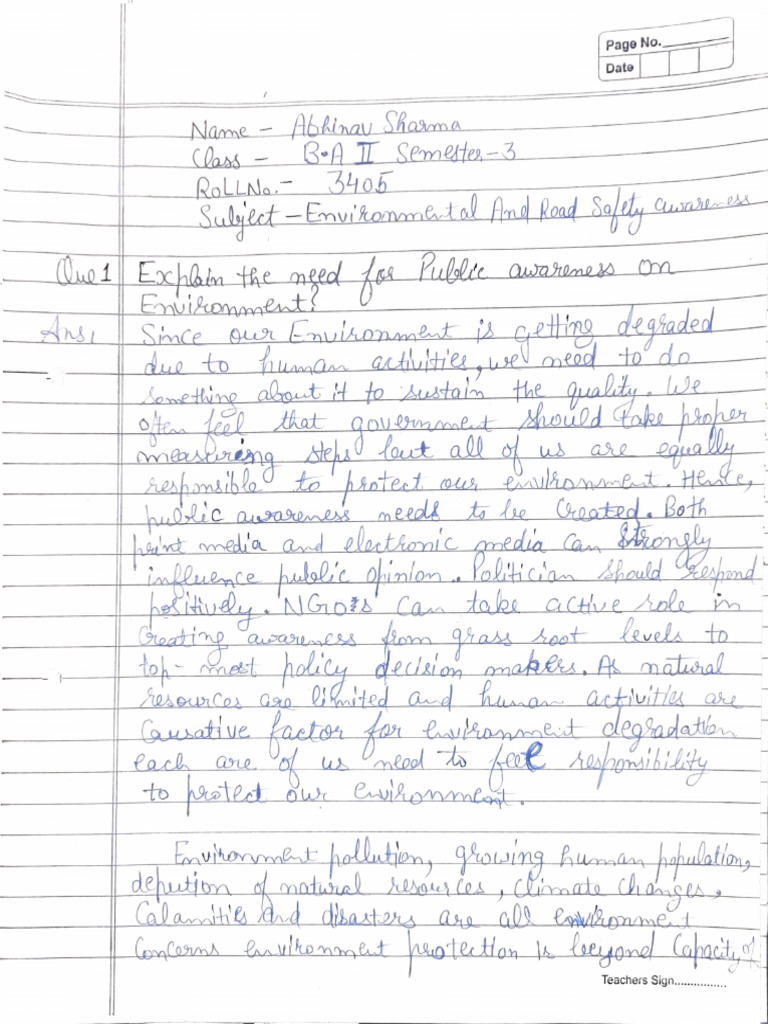 Page No.
Date
Name - Abhinav Sharma
Class - B.A II Semester-3
RoLLNo.- 3405
Subject - Environmental And Road Safety awareness
Que 1 Explain the need for Public awareness on
Environment?
Ans1 Since our Environment is getting degraded
due to human activities, we need to do
something about it to sustain the quality. We
often feel that government should take proper
measuring steps but all of us are equally
responsible to protect our environment. Hence,
public awareness needs to be Created. Both
print media and electronic media can strongly
influence public opinion. Politician should respond
positively. NGO's can take active role in
Creating awareness from grass root levels to
top-most policy decision makers. As natural
resources are limited and human activities are
Causative factor for environment degradation
each are of us need to feel responsibility
to protect our environment.
Environment pollution, growing human population,
depution of natural resources, Climate Changes,
Calamities and disasters are all environment
Concerns environment protection is beyond Capacity of
Teachers Sign................